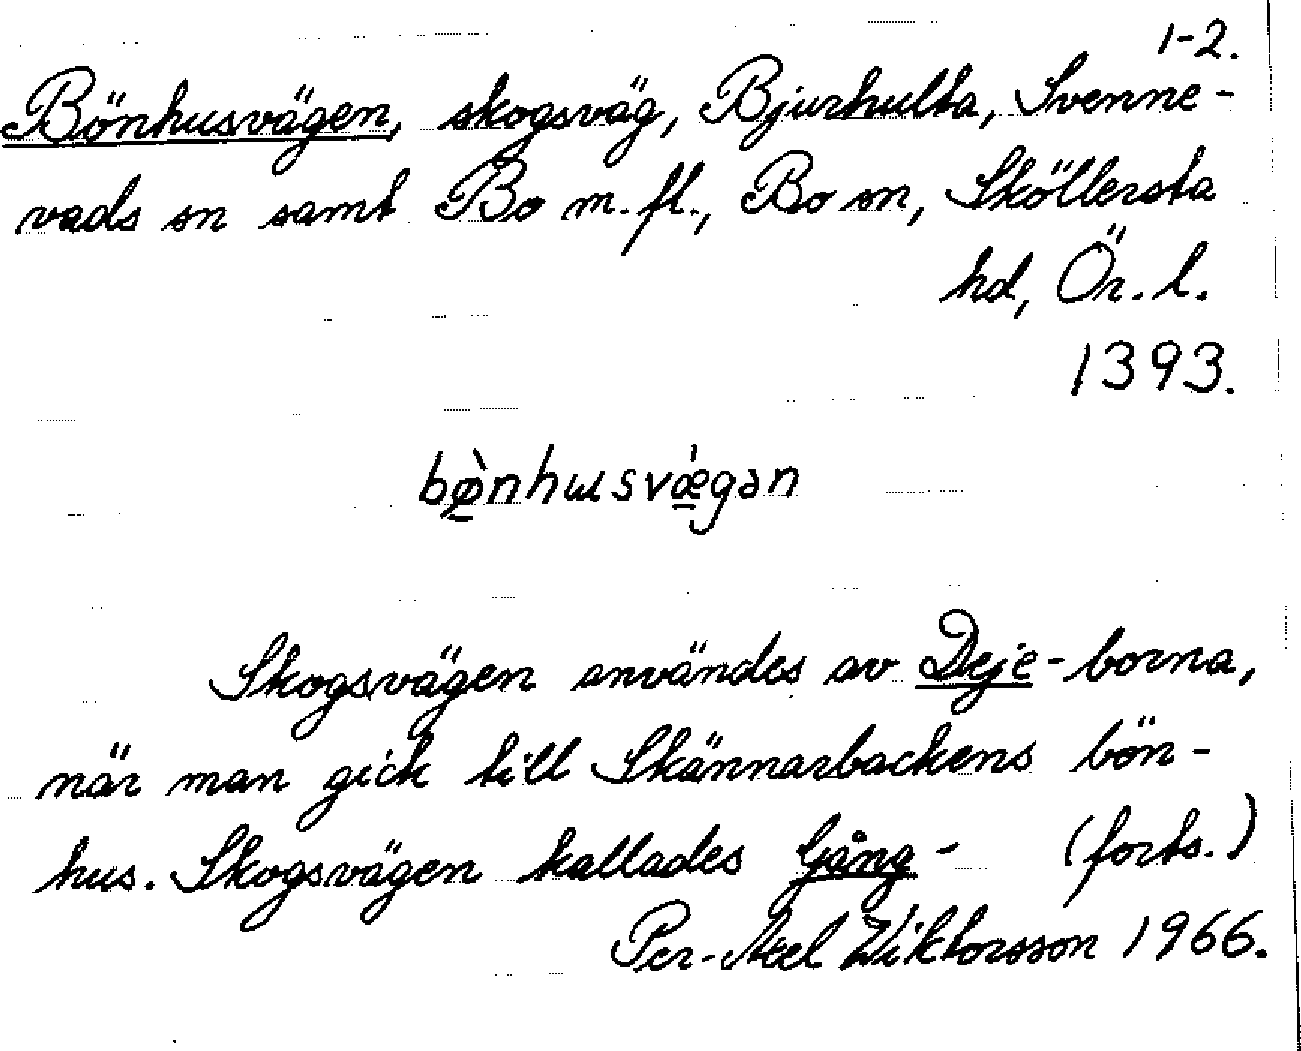 1-2.
Bönhusvägen, skogsväg, Bjurhulta, Svenne-
vads sn samt Bo m.fl., Bo sn, Sköllersta
hd, Ör. l.
1393.
bø̀nhusvǽgən
Skogsvägen användes av Deje-borna,
när man gick till Skännarbackens bön-
hus. Skogsvägen kallades Gång- (forts.)
Per-Axel Wiktorsson 1966.